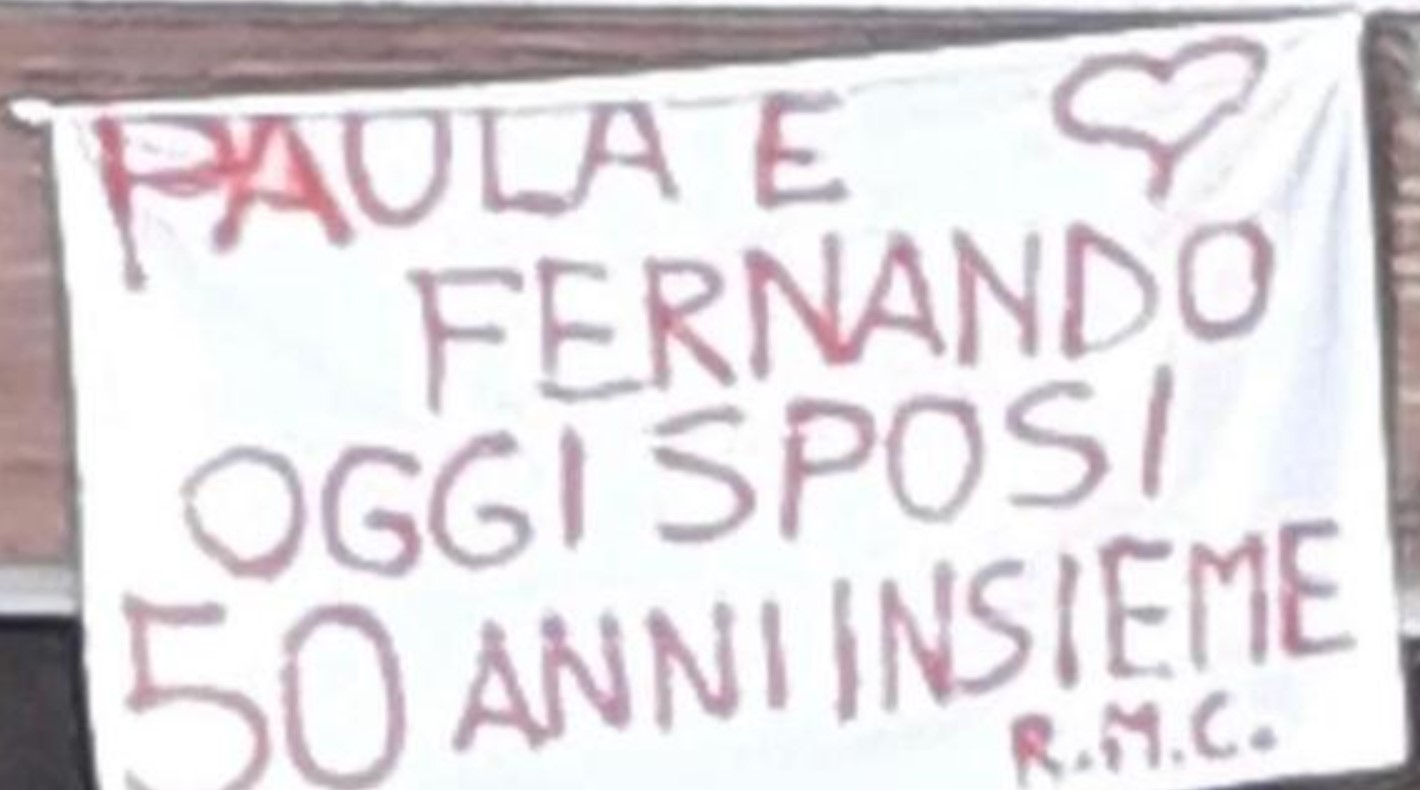 PAULA E
FERNANDO
OGGI SPOSI
50 ANNI INSIEME
R.M.C.